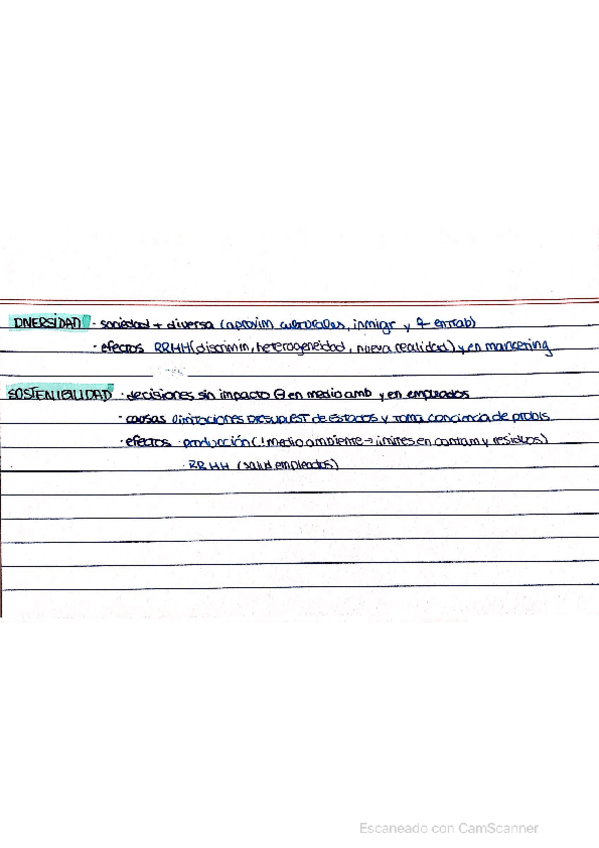 DIVERSIDAD · sociedad + diversa (aproxim culturales, inmigr y ♀ en trab)
· efectos RRHH (discrimin, heterogeneidad, nueva realidad) y en marketing
SOSTENIBILIDAD · decisiones sin impacto ⊖ en medio amb y en empleados
· causas limitaciones presupuest de Estados y toma conciencia de probls
· efectos · producción (! medio ambiente → límites en contam y residuos)
· RRHH (salud empleados)
Escaneado con CamScanner